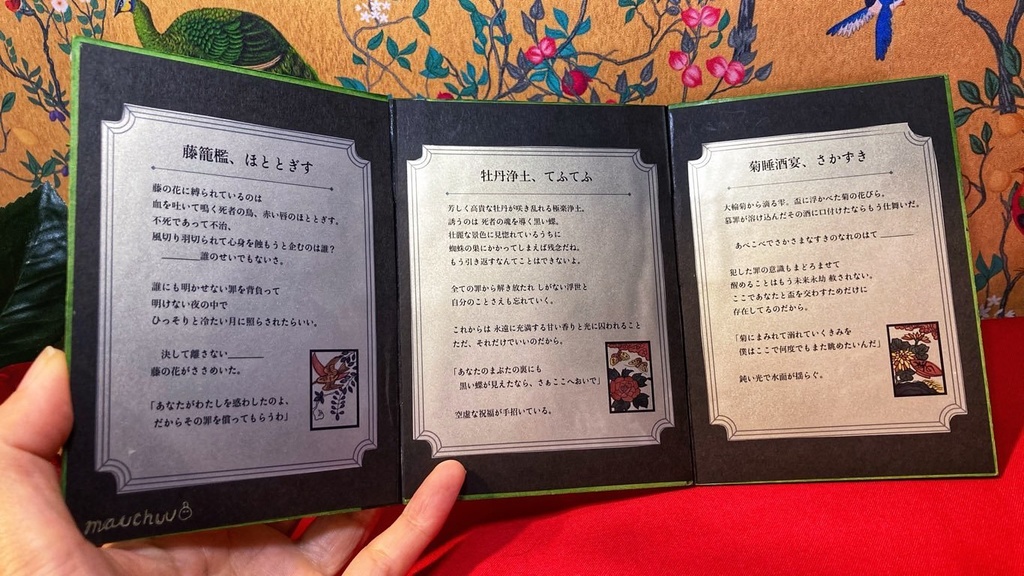 藤籠檻、ほととぎす
藤の花に縛られているのは
血を吐いて鳴く死者の鳥、赤い唇のほととぎす。
不死であって不治、
風切り羽切られて心身を蝕もうと企むのは誰？
______誰のせいでもないさ。
誰にも明かせない罪を背負って
明けない夜の中で
ひっそりと冷たい月に照らされたらいい。
決して離さない______
藤の花がささめいた。
「あなたがわたしを惑わしたのよ、
だからその罪を償ってもらうわ」
mauchuu
牡丹浄土、てふてふ
芳しく高貴な牡丹が咲き乱れる極楽浄土。
誘うのは 死者の魂を導く黒い蝶。
壮麗な景色に見惚れているうちに
蜘蛛の巣にかかってしまえば残念だね。
もう引き返すなんてことはできないよ。
全ての罪から解き放たれ しがない浮世と
自分のことさえも忘れていく。
これからは 永遠に充満する甘い香りと光に囚われること
ただ、それだけでいいのだから。
「あなたのまぶたの裏にも
黒い蝶が見えたなら、さぁここへおいで」
空虚な祝福が手招いている。
菊睡酒宴、さかずき
大輪菊から滴る雫、盃に浮かべた菊の花びら。
慕罪が溶け込んだその酒に口付けたならもう仕舞いだ。
あべこべでさかさまなすきのなれのはて______
犯した罪の意識もまどろませて
醒めることはもう未来永劫 赦されない。
ここであなたと盃を交わすためだけに
存在してるのだから。
「菊にまみれて溺れていくきみを
僕はここで何度でもまた眺めたいんだ」
鈍い光で水面が揺らぐ。